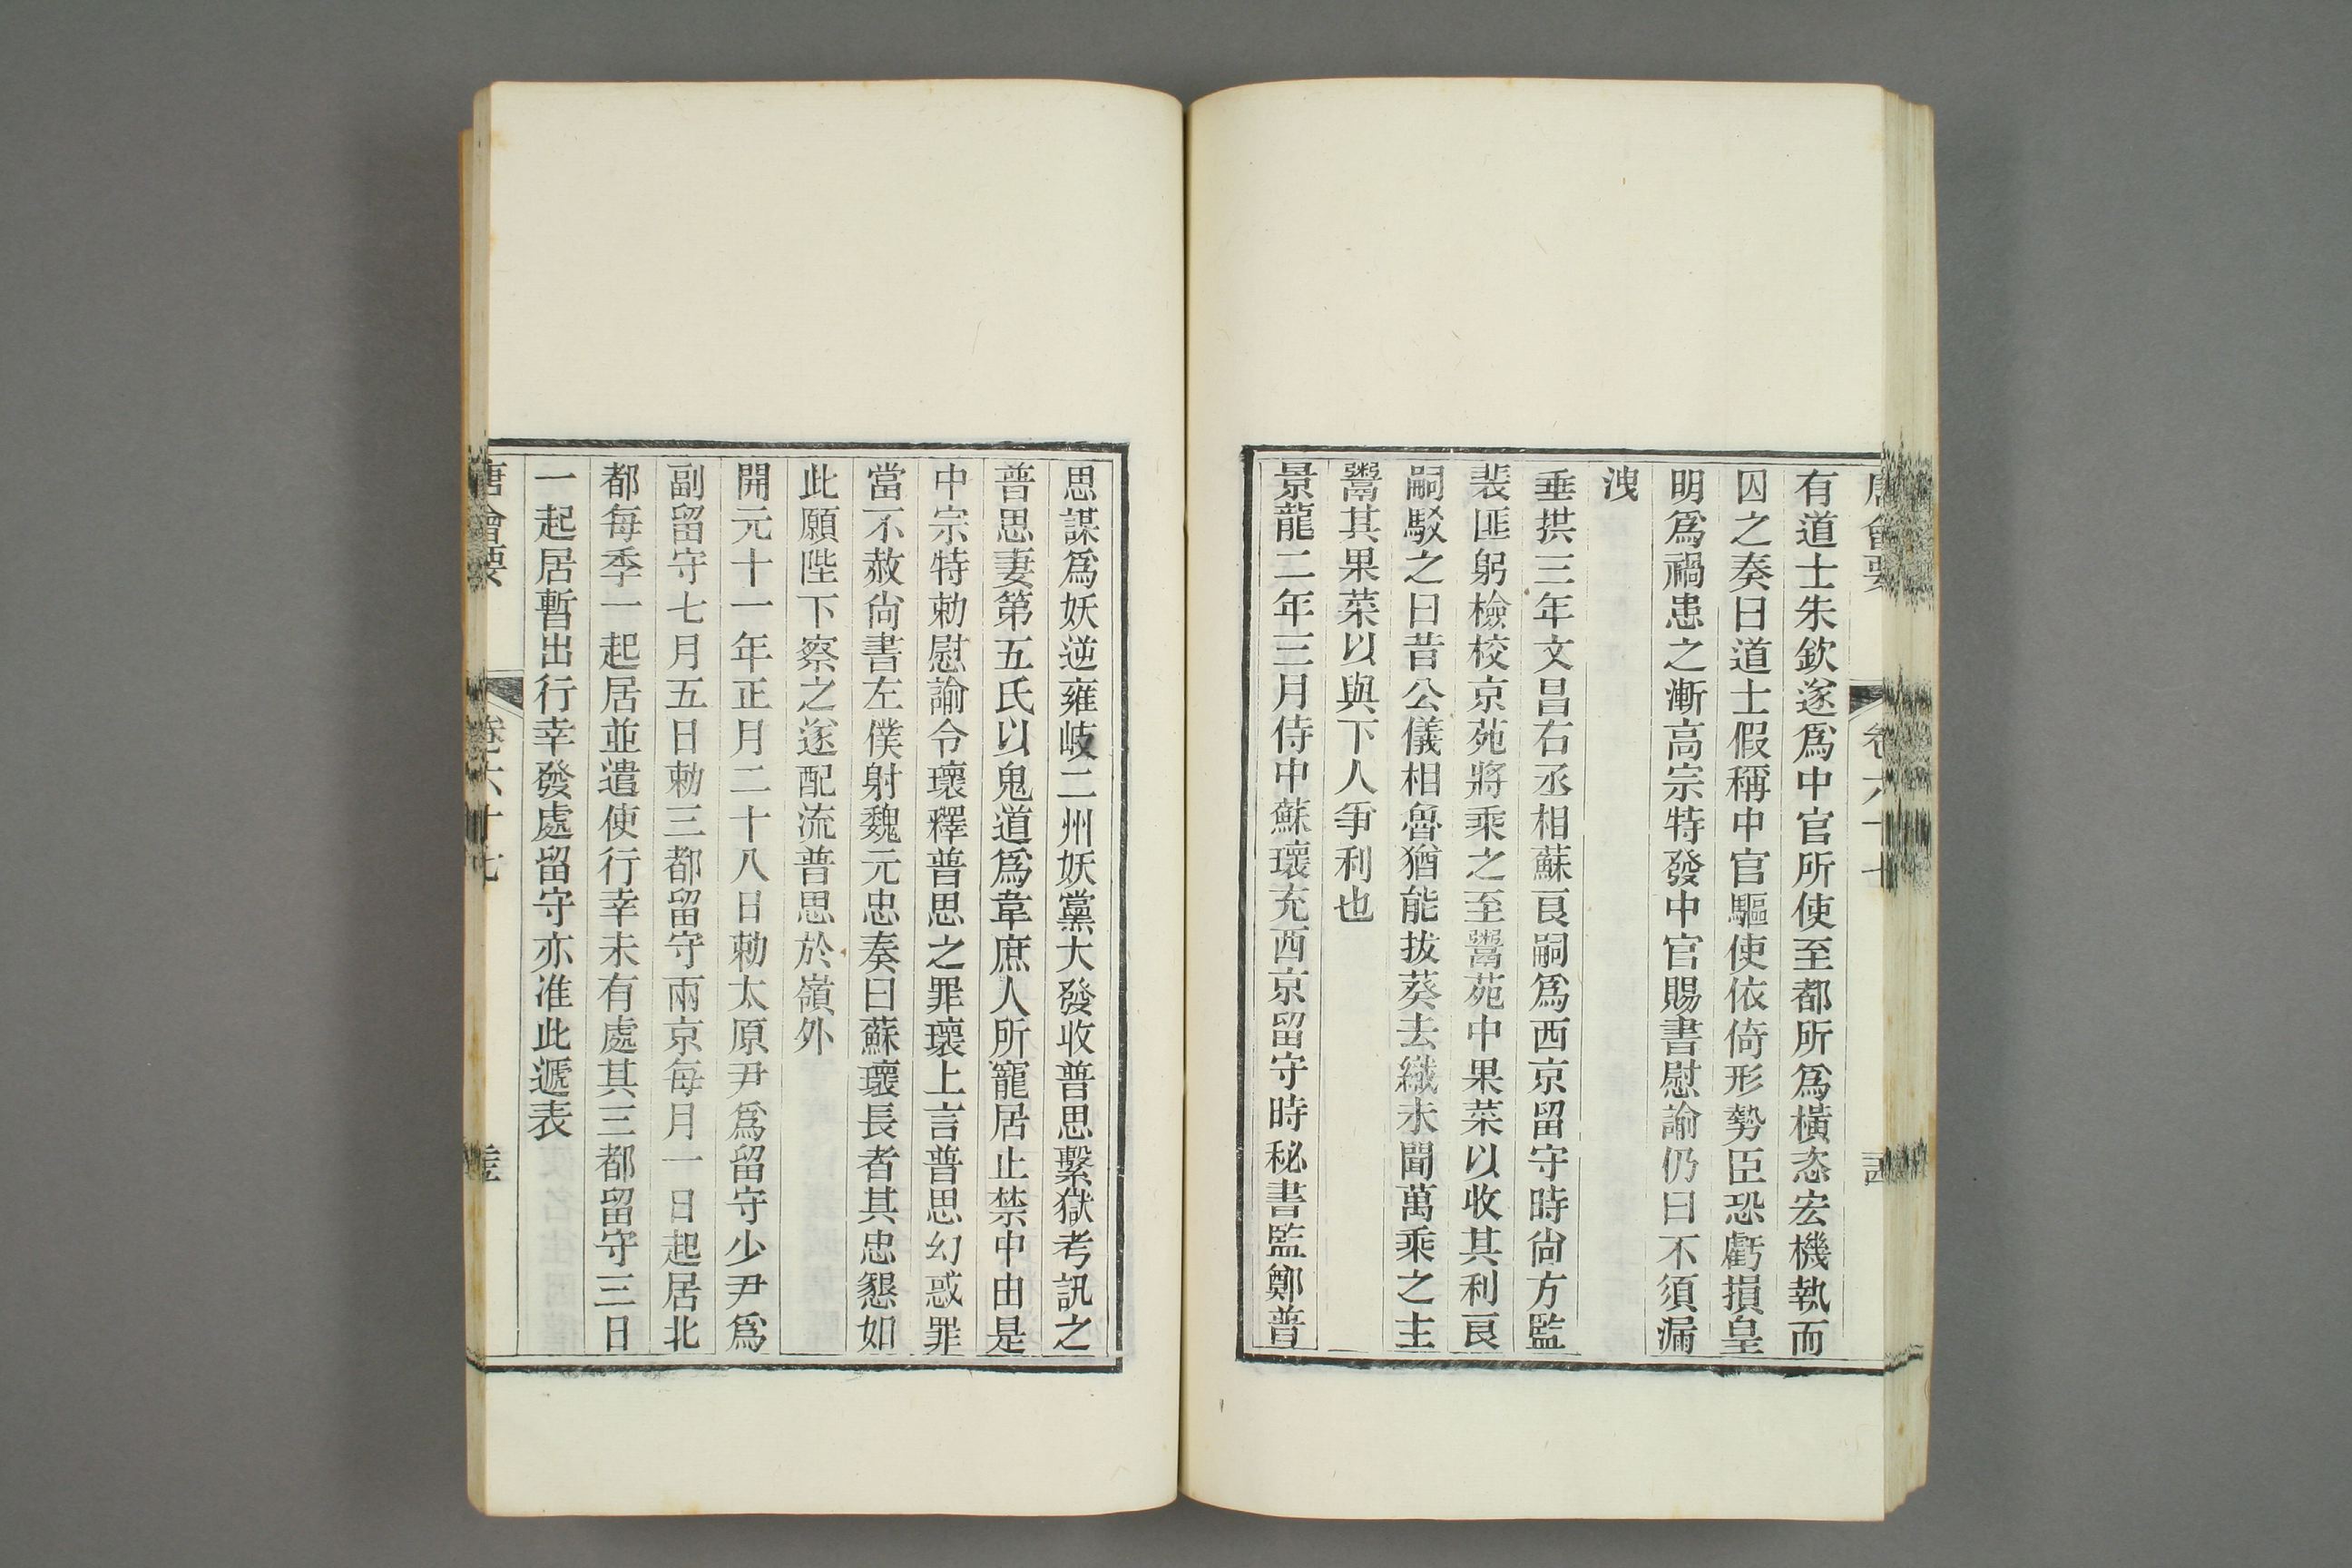 唐會要 卷六十七
有道士朱欽遂爲中官所使至都所爲橫恣宏機執而
囚之奏曰道士假稱中官驅使依倚形勢臣恐虧損皇
明爲禍患之漸高宗特發中官賜書慰諭仍曰不須漏
洩
垂拱三年文昌右丞相蘇良嗣爲西京留守時尙方監
裴匪躬檢校京苑將乘之至鬻苑中果菜以收其利良
嗣駁之曰昔公儀相魯猶能拔葵去織未聞萬乘之主
鬻其果菜以與下人爭利也
景龍二年三月侍中蘇瓌充西京留守時秘書監鄭普
思謀爲妖逆雍岐二州妖黨大發收普思繫獄考訊之
普思妻第五氏以鬼道爲韋庶人所寵居止禁中由是
中宗特勅慰諭令瓌釋普思之罪瓌上言普思幻惑罪
當不赦尙書左僕射魏元忠奏曰蘇瓌長者其忠懇如
此願陛下察之遂配流普思於嶺外
開元十一年正月二十八日勅太原尹爲留守少尹爲
副留守七月五日勅三都留守兩京每月一日起居北
都每季一起居並遣使行幸未有處其三都留守三日
一起居暫出行幸發處留守亦准此遞表
唐會要 卷六十七